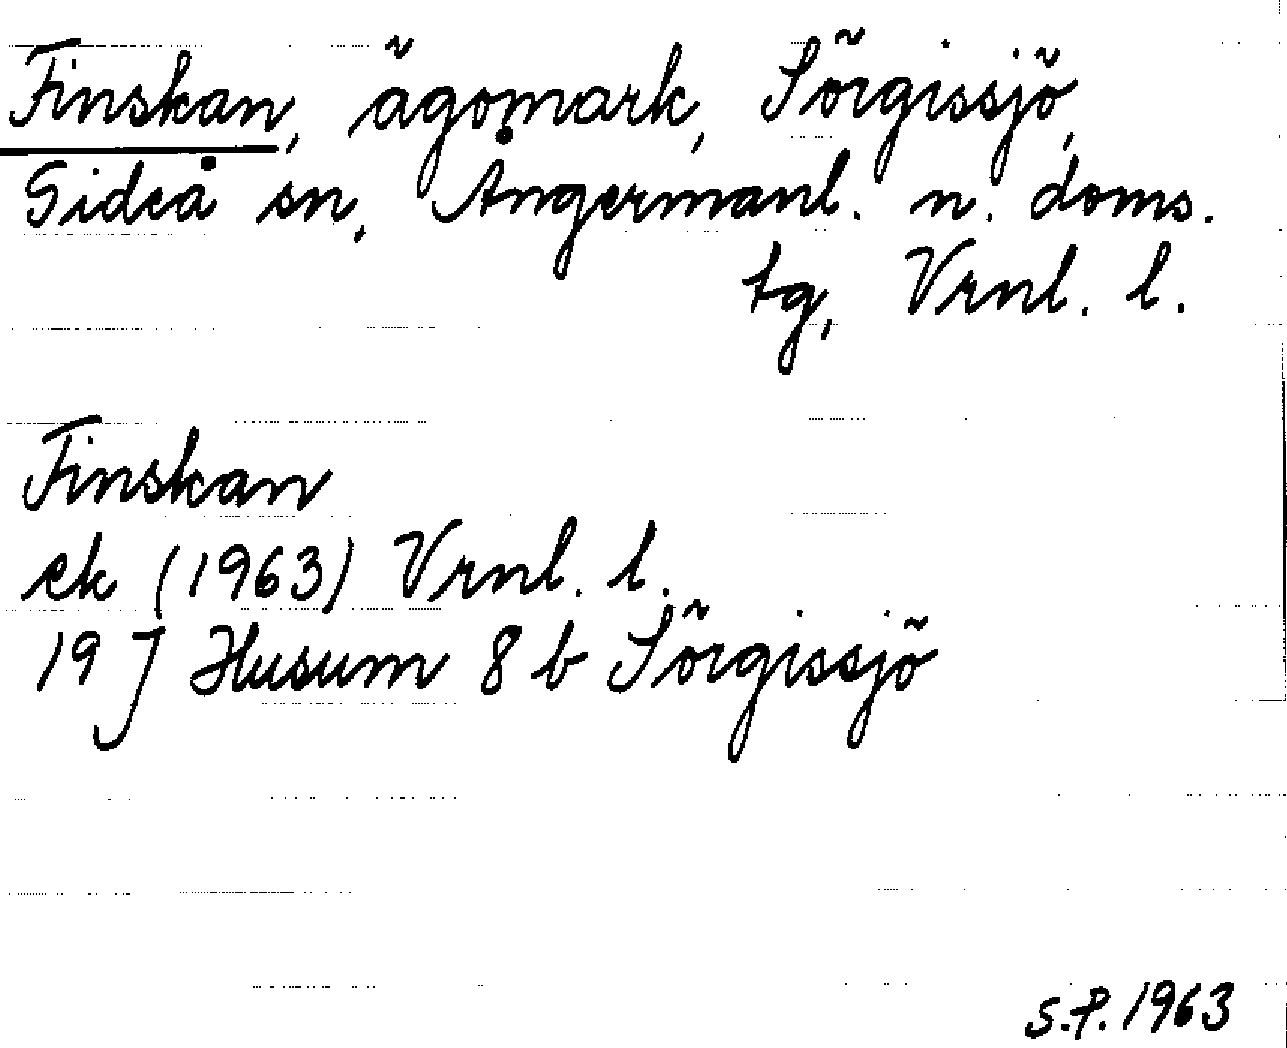 Finskan, ägomark, Sörgissjö,
Sideå sn, Ångermanl. n. doms.
tg, Vrnl. l.
Finskan
ek (1963) Vrnl. l.
19 J Husum 8 b Sörgissjö
S.P. 1963